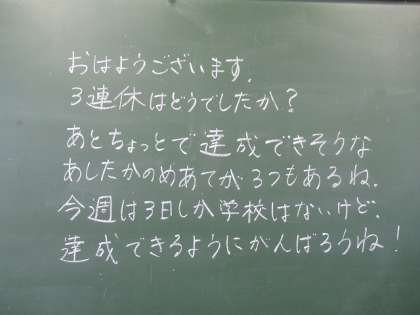 おはようございます。
3連休はどうでしたか?
あとちょっとで達成できそうな
あしたかのめあてが3つもあるね。
今週は3日しか学校はないけど、
達成できるようにがんばろうね!